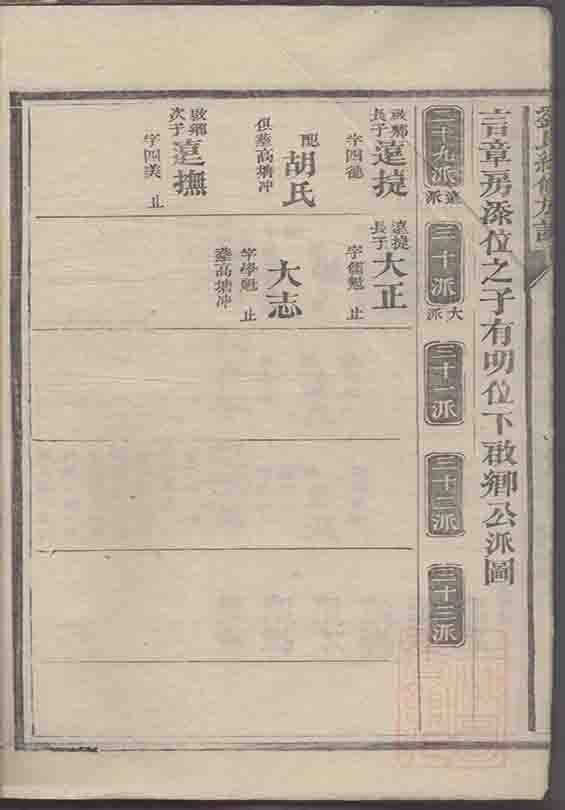 言章房添位之子有明位下啟鄉公派圖
二十九派
遠派
三十派
大派
三十一派
三十二派
三十三派
啟鄉長子
遠提
字四德
配胡氏
俱塟高塘冲
啟鄉次子
遠撫
字四美 止
遠提長子
大正
字儒魁 止
大志
字學魁 止
塟高塘冲